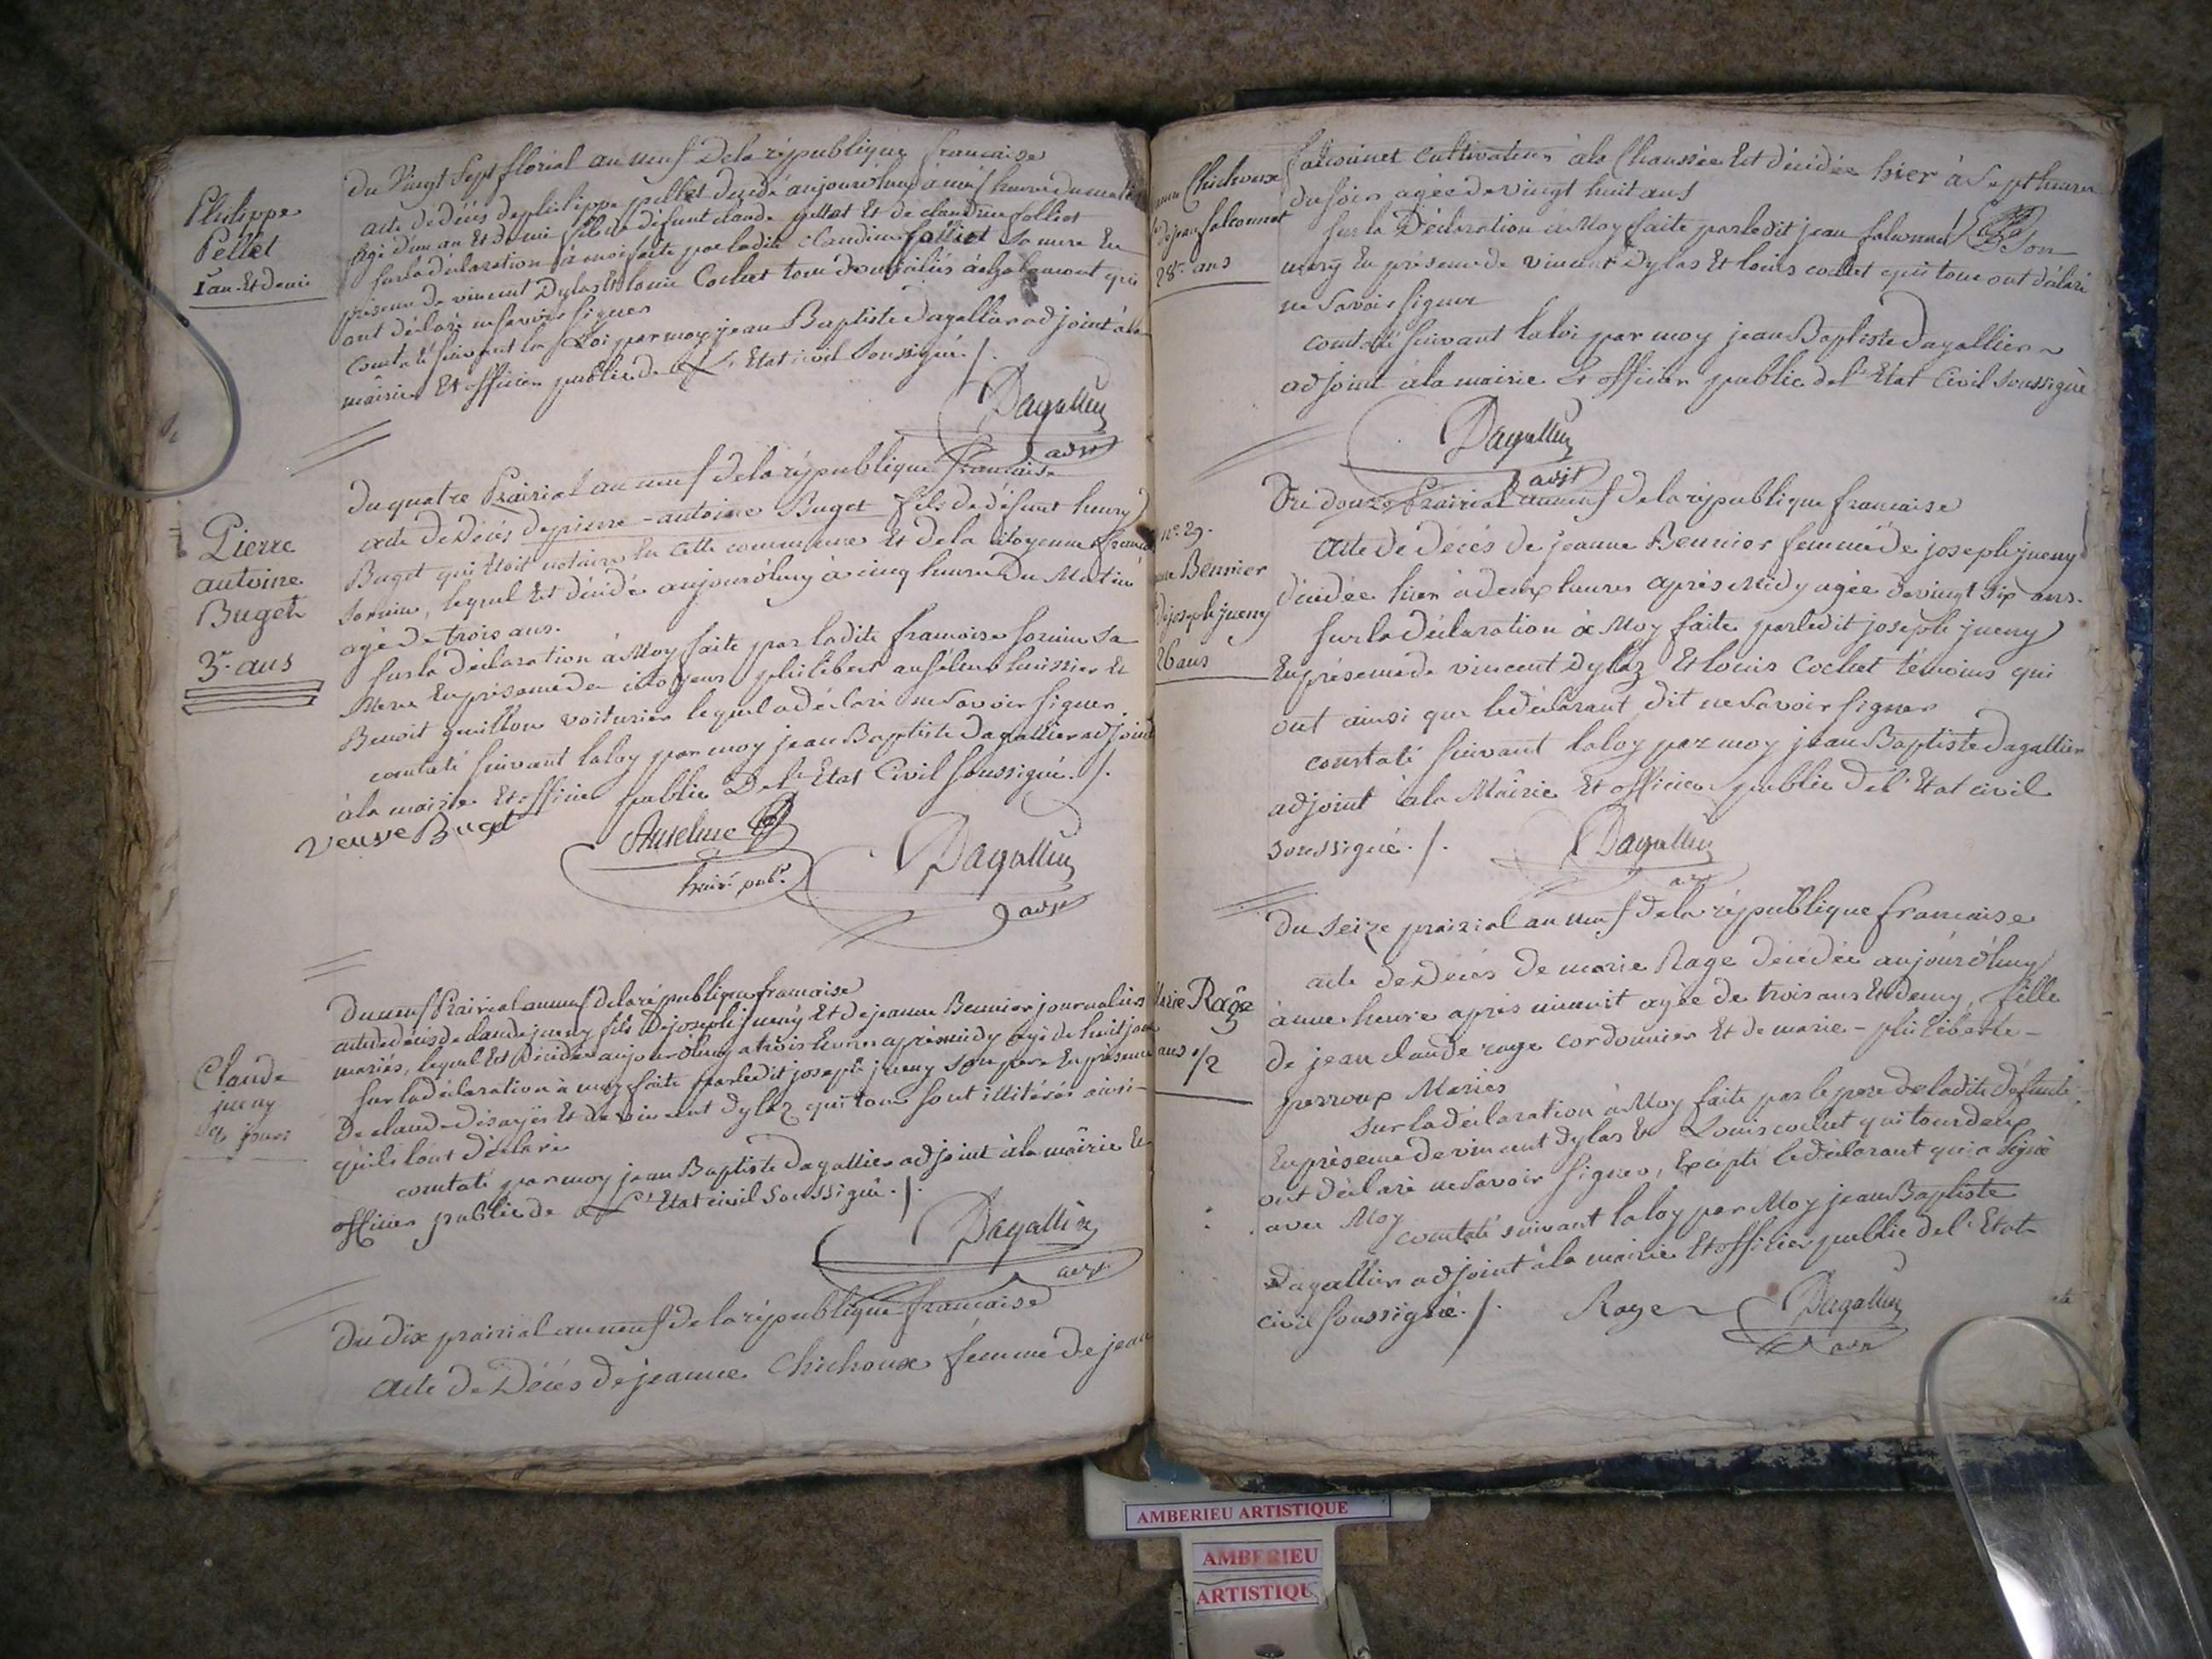 Philippe
Pellet
1 an Et demi
Du Vingt Sept floréal an neuf Dela république francaise
acte de décès de philippe pellet décédé aujourd'huy a neuf heure du matin
agé d'un an Et demi fils de défunt claude pellet Et de claudine folliet
sur la déclaration à moi faite par ladite claudine folliet sa mere En
présence de vincent Dylas Et louis Cochet tous domiciliés à qui
ont déclaré ne savoir signer
constaté suivant la Loi par moy jean Baptiste Dagallier adjoint à la
mairie Et officier public de L'Etat civil Soussigné ./.
Dagallier
adjt
Pierre
antoine
Buget
3 ans
Du quatre Prairial an neuf Dela république francaise
acte De Décès de pierre-antoine Buget fils de défunt henry
Buget qui étoit notaire En cette commune Et de la citoyenne
, lequel Est décédé aujourd'huy à cinq heures Du Matin
agé De trois ans.
sur la déclaration à Moy faite par ladite francoise sa
Mere En présence de citoyens philibert anselme huissier Et
Benoit guillon voiturier lequel a déclaré ne Savoir signer.
constaté suivant la loy par moy jean Baptiste Dagallier adjoint
à la mairie Et officier public De l'Etat Civil soussigné ./.
Veuve Buget
Anselme
huis. pub.
Dagallier
adjt
Claude
jueny
jours
Du neuf Prairial an neuf dela république francaise
acte de décès de claude jueny fils De joseph jueny Et de jeanne Bennier journaliers
mariés, lequel Est Décédé aujourd'huy a trois heures après midy agé de huit jours
sur la déclaration à moy faite par ledit joseph jueny son pere En présence
De claude Et de vincent Dylaz qui tous sont illitérés ainsi
qu'ils l'ont Déclaré
constaté par moy jean Baptiste Dagallier adjoint à la mairie Et
officier public de L'Etat civil Soussigné ./.
Dagallier
adjt
Du Dix prairial an neuf de la république francaise
acte De Décès de jeanne Chichoux femme De jean
Chichoux
de jean falconnet
28 ans
falconnet cultivateur à la Chaussée Est décédée hier à Sept heures
du soir agée de vingt huit ans
sur la Déclaration à Moy faite par ledit jean falconnet Son
mary En présence de vincent Dylas Et louis cochet qui tous ont déclaré
ne Savoir signer
constaté suivant la loi par moy jean Baptiste Dagallier
adjoint à la mairie Et officier public de l'Etat Civil Soussigné
Dagallier
adjt
n° 29.
Bennier
de joseph jueny
26 ans
Du douze Prairial an neuf de la république francaise
acte de décès de jeanne Bennier femme de joseph jueny
décédée hier à deux heures après Midy agée de vingt Six ans.
sur la déclaration à Moy faite par ledit joseph jueny
En présence de vincent Dylaz Et louis Cochet témoins qui
ont ainsi que le déclarant dit ne Savoir signer
constaté suivant la loy par moy jean Baptiste Dagallier
adjoint à la Mairie Et officier public de l'Etat civil
soussigné ./.
Dagallier
Marie Rage
3
ans 1/2
Du seize prairial an neuf de la république francaise
acte de Décès De marie Rage décédée aujourd'huy
à une heure après minuit agée de trois ans Et demy, fille
de jean claude rage cordonnier Et de marie-philiberte-
perroux Mariés
sur la déclaration à Moy faite par le pere de ladite défunte
En présence De vincent Dylas Et Louis cochet qui tous deux
ont déclaré ne Savoir signer, Excepté le déclarant qui a signé
avec Moy
constaté suivant la loy par Moy jean Baptiste
Dagallier adjoint à la mairie Et officier public de l'Etat
civil soussigné ./.
Rage
Dagallier
AMBERIEU ARTISTIQUE
AMBERIEU
ARTISTIQU